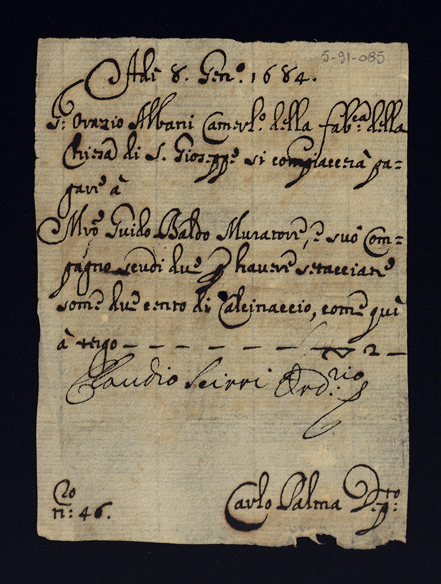 5-91-085
Adi 8. Genº. 1684.
Sr: Orazio Albani Camerl.º della fab.ca della
Chiesa di S. Gioseppe si compiacerà pa=
gare à
Mrõ Guido Baldo Muratore, e suo Com=
pagno scudi due p havere setacciate
some due cento di Calcinaccio, come qui
à tergo — — — — — — — 2 —
Claudio Ordrio
nº: 46.
Carlo Palma